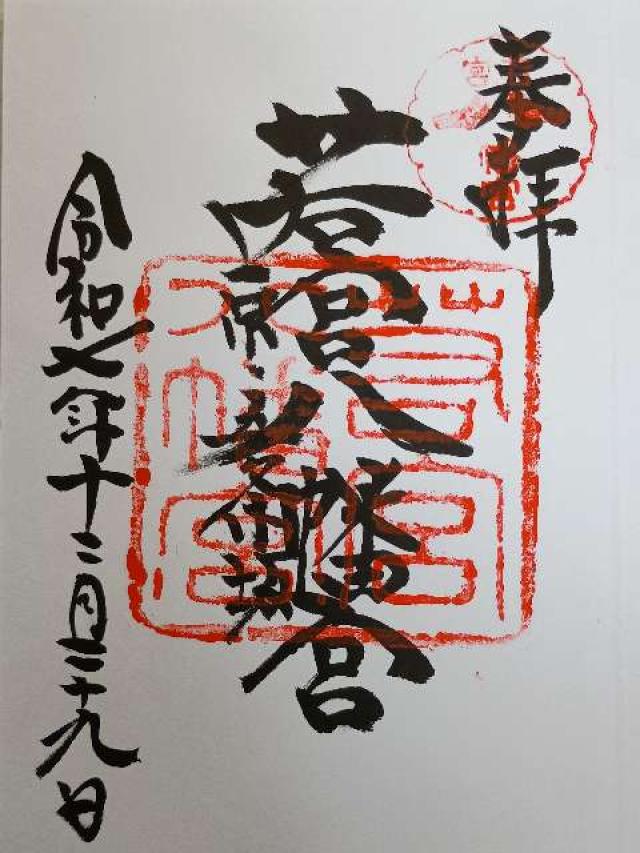 奉拝
若宮八幡宮
令和七年十二月二十九日